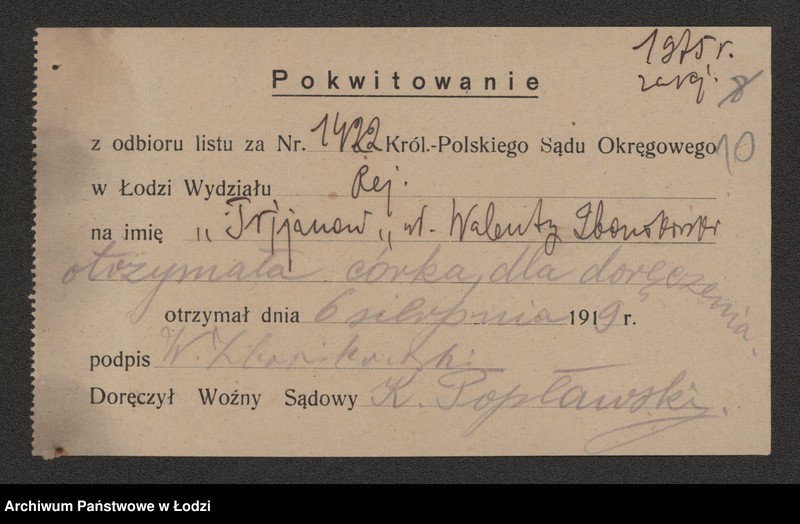 1975 r.
zarej. 8
Pokwitowanie
z odbioru listu za Nr. 1422 Król.-Polskiego Sądu Okręgowego 10
w Łodzi Wydziału Rej.
na imię „Tryjanow„ wł. Walenty
otrzymała córka dla doręczenia.
otrzymał dnia 6 sierpnia 1919 r.
podpis W.
Doręczył Woźny Sądowy K. Popławski.
Archiwum Państwowe w Łodzi